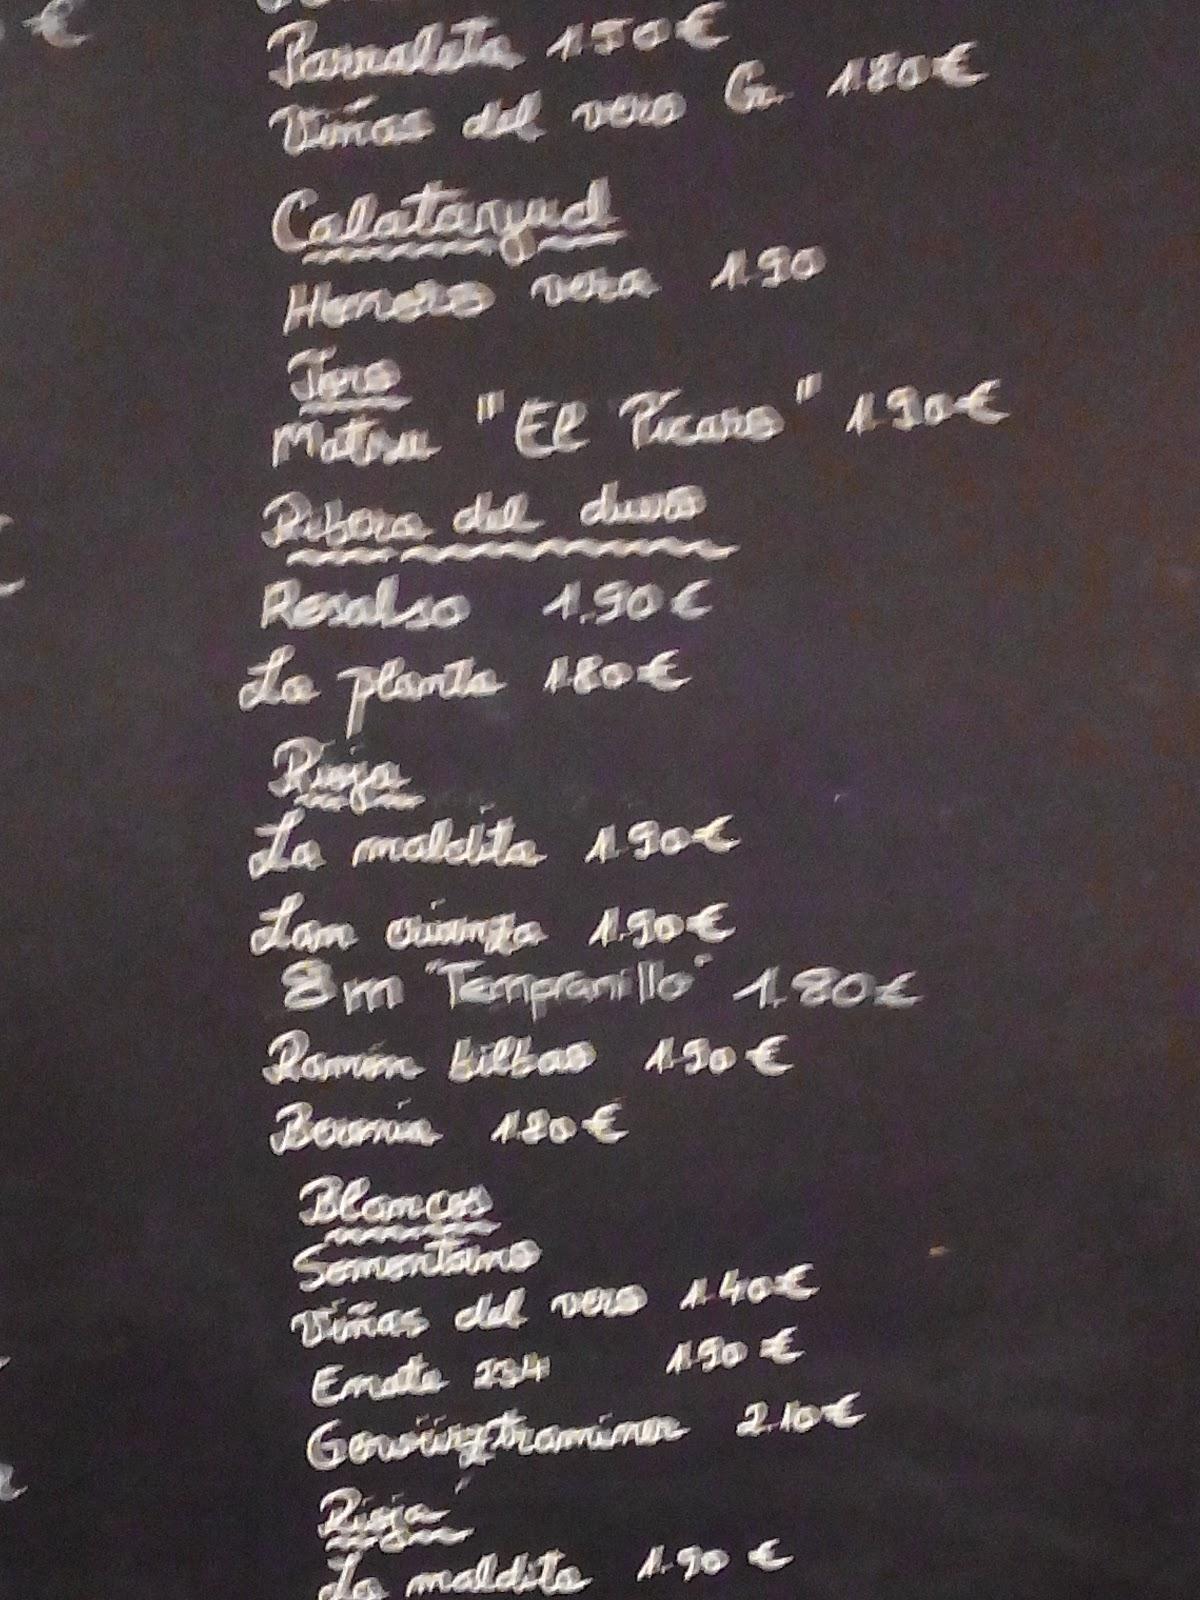 €
Parraleta 1.50€
Viñas del vero Cr. 1.80€
Calatayud
Honoro vera 1.90
Toro
Matsu "El Pícaro" 1.90€
Ribera del duero
Resalso 1.90€
La planta 1.80€
Rioja
La maldita 1.90€
Lan crianza 1.90€
8m "Tempranillo" 1.80€
Ramón bilbao 1.90€
1.80€
Blancos
Somontano
Viñas del vero 1.40€
Enate 234 1.90€
Gewürztraminer 2.10€
Rioja
La maldita 1.90€